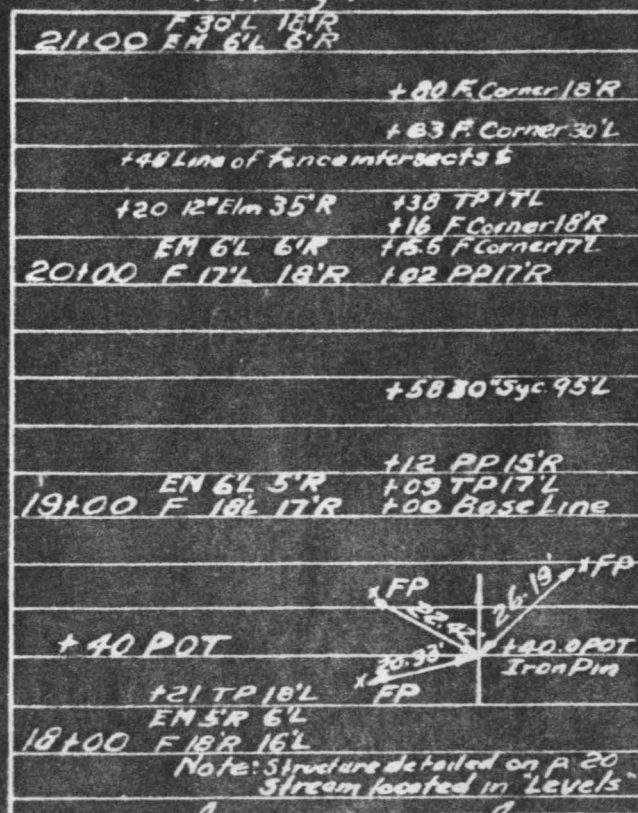 F 30'L 18'R
21+00 EM 6'L 6'R
+80 F. Corner 18'R
+63 F. Corner 30'L
+48 Line of fence intersects ℄
+20 12" Elm 35'R +38 TP 17'L
+16 F Corner 18'R
EM 6'L 6'R +15.5 F Corner 17'L
20+00 F 17'L 18'R +02 PP 17'R
+58 30" Syc. 95'L
+12 PP 15'R
EM 6'L 5'R +09 TP 17'L
19+00 F 18'L 17'R +00 Base Line
FP 22.42' 26.19' FP
+40 POT 20.93' +40.0 POT
Iron Pin
+21 TP 18'L FP
EM 5'R 6'L
18+00 F 18'R 16'L
Note: Structure detailed on p. 20
Stream located in "Levels"